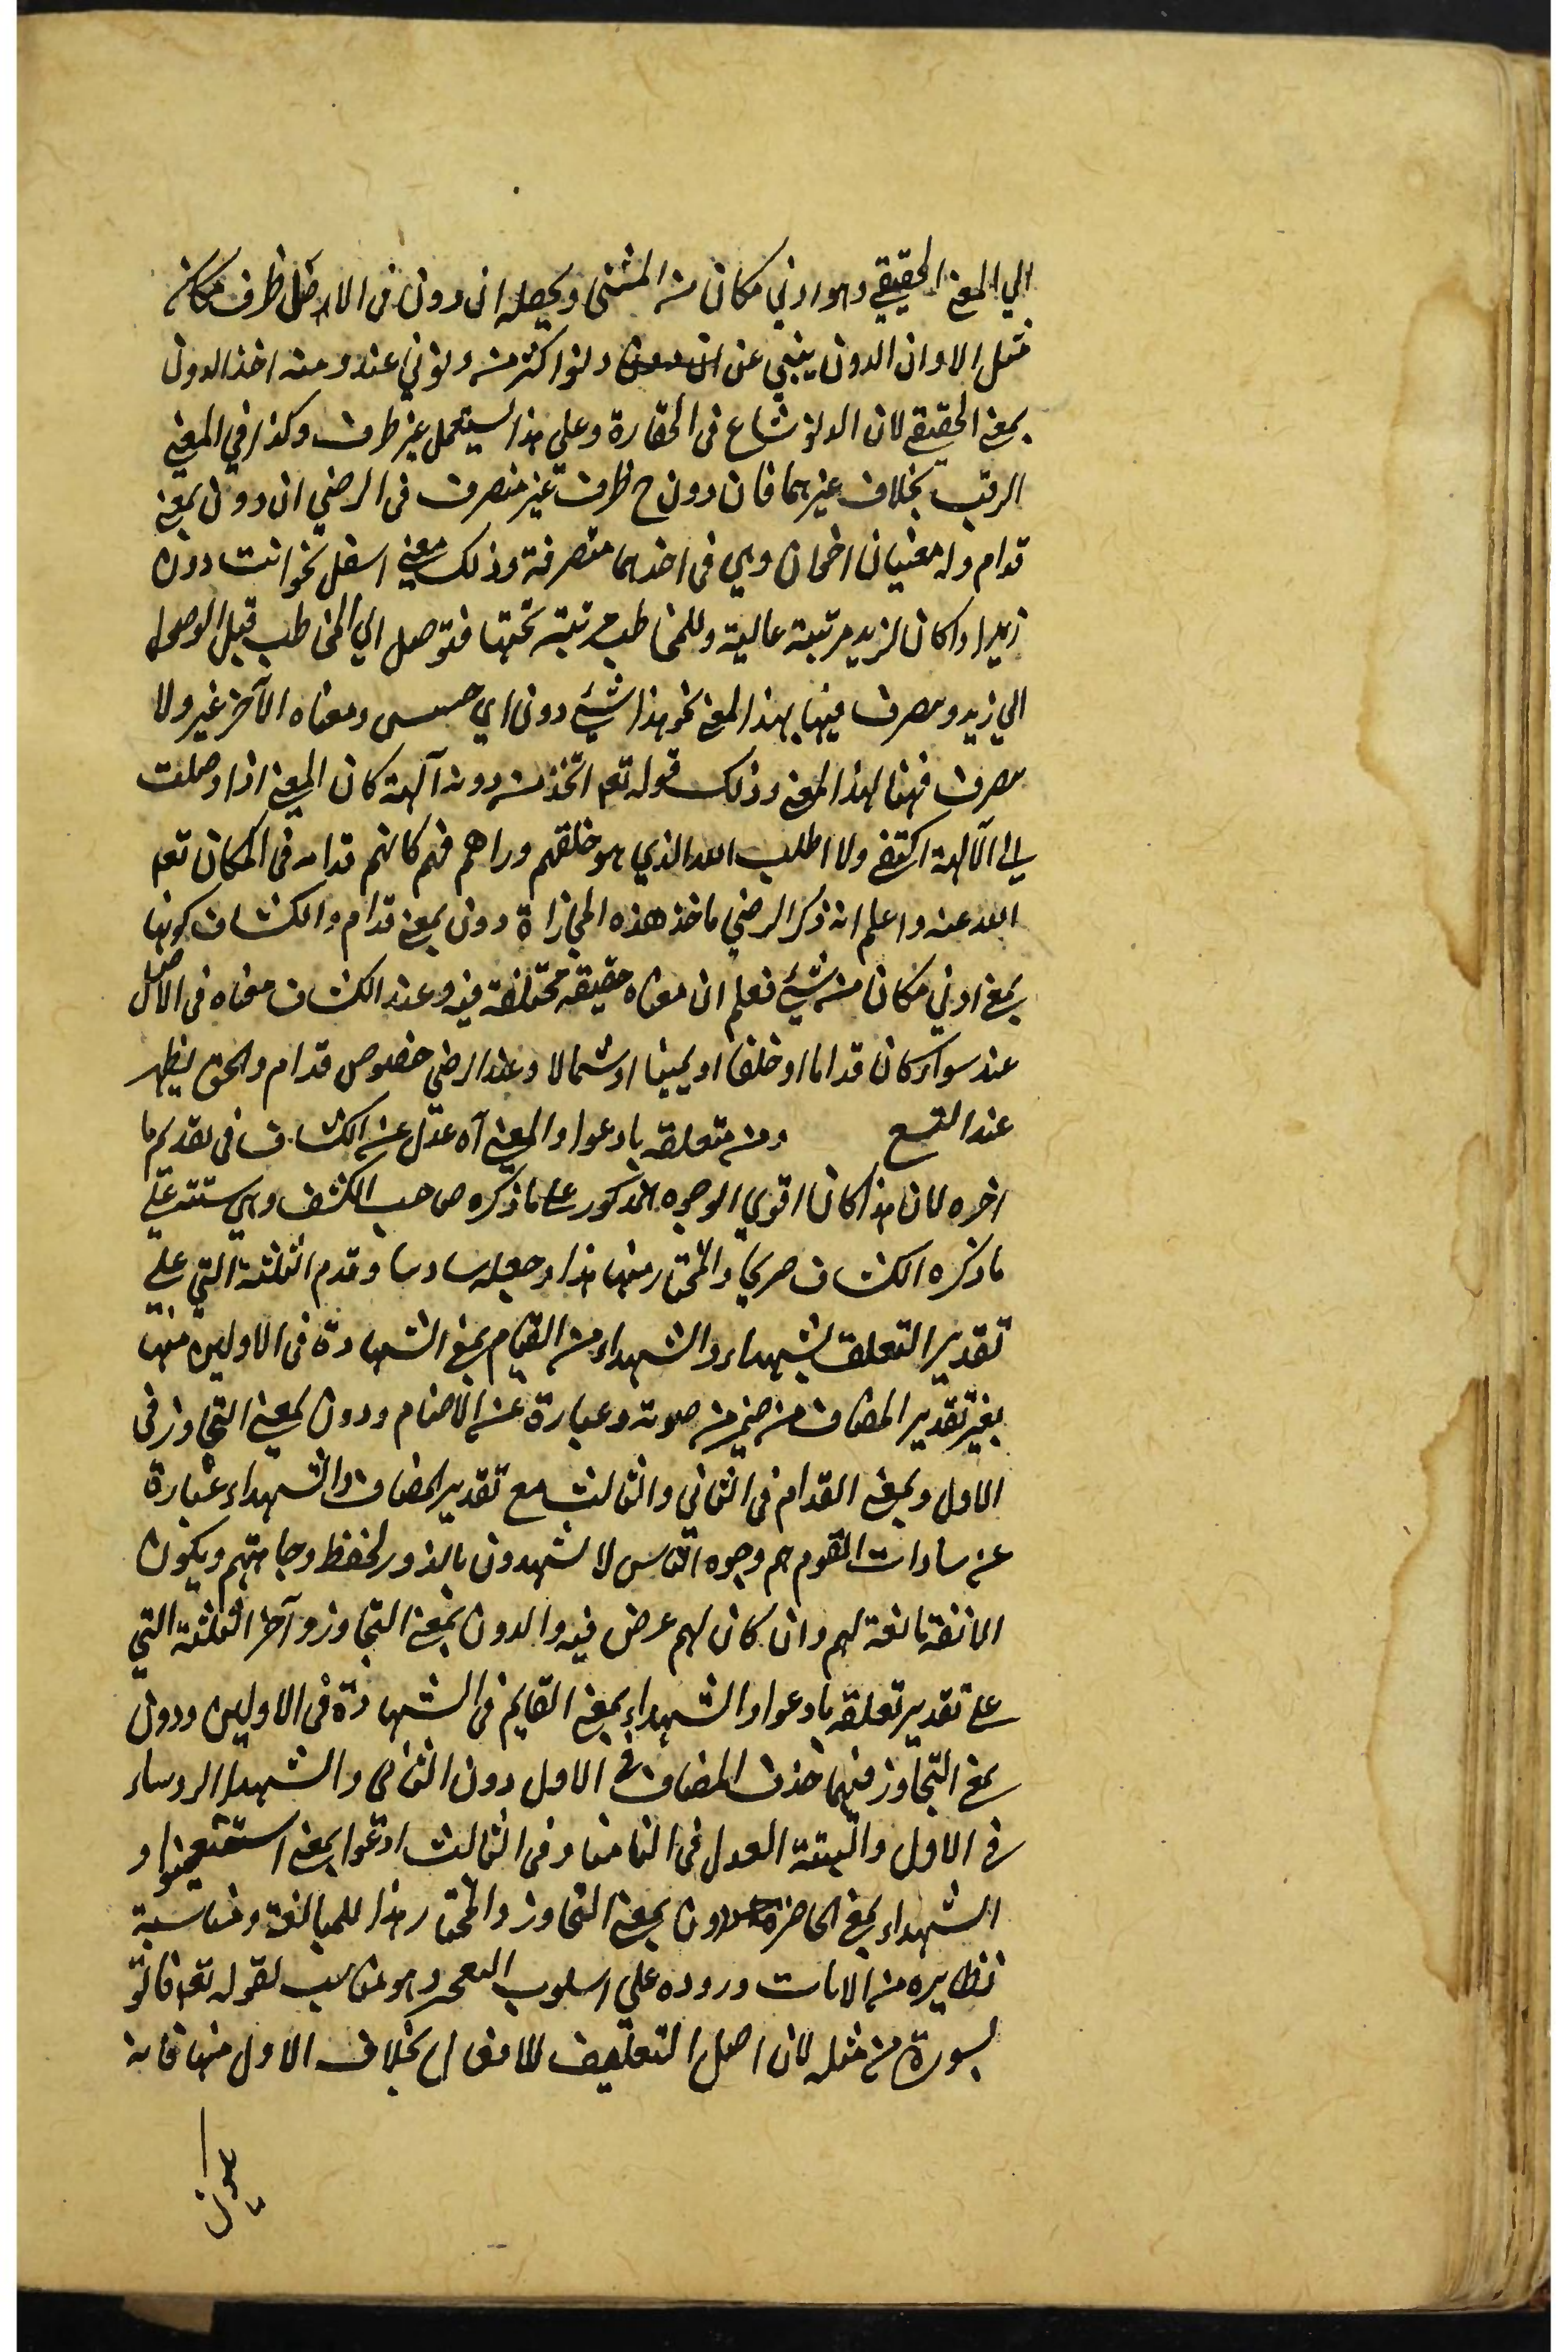 الي المعنى الحقيقي وهو ادني مكان من المشئى ويحصله ان دون في الاصل ظرف مكان
مثل الا وان الدون ينبي عن دنو اكثر منه ودنوني عند ومنه اخذ الدون
بمعنى الحقيقي لان الدنو شاع في الحقارة وعلي هذا يستعمل غير ظرف وكذا في المعنى
الرتب بخلاف غيرهما فان دون ح ظرف غير منصرف في الرضي ان دون بمعنى
قدام وله معنيان اخران وهي في احدهما متصرفة وذلك معني اسفل نحو انت دون
زيد اذا كان لزيد مرتبة عالية وللمخاطب مرتبة تحتها فتوصل الي المخاطب قبل الوصول
الي زيد وتصرف فيها بهذا المعنى نحو هذا شيء دون اي خسيس ومعناه الآخر غير ولا
تصرف فيها بهذا المعنى وذلك قوله تع اتخذ من دونه آلهة كان المعنى اذا وصلت
الى الآلهة اكتفى ولا اطلب الله الذي هو خلقهم وراهم فهم كانهم قدامه في المكان تع
الله عنه واعلم انه ذكر الرضي ماخذ هذه المجازاة دون بمعنى قدام والكشاف كونها
بمعنى ادني مكان من شيء فعلم ان معناه حقيقة مختلفة فيه وعند الكشاف معناه في الاصل
عند سواء كان قداما او خلفا او يمينا او شمالا وعند الرضي خصوص قدام والحق يظهر
عند التتبع ومن متعلقة بادعوا والمعنى آه عدل عن الكشاف في تقديم ما
اخره لان هذا كان اقوي الوجوه المذكور على ما ذكره صاحب الكشف وهي ستة علي
ما ذكره الكشاف صريحا والمختار منها هذا وجعله سادسا وقدم الثلثة التي علي
تقدير التعلق بشهداء والشهداء من القيام بمعنى الشهادة في الاولين منها
بغير تقدير المضاف من عبارة عن الاصنام ودون بمعنى التجاوز في
الاول وبمعنى القدام في الثاني والثالث مع تقدير المضاف والشهداء عبارة
عن سادات القوم هم وجوه الناس لا يشهدون بالزور لحفظ وجاهتهم ويكون
الانفة مانعة لهم وان كان لهم عرض فيه والدون بمعنى التجاوز وآخر الثلثة التي
على تقدير تعلقه بادعوا والشهداء بمعنى القايم في الشهادة في الاولين ودون
بمعنى التجاوز فيهما حذف المضاف في الاول دون الثاني والشهدا الروساء
في الاول والبينة العدل في الثاني وفي الثالث ادعوا بمعنى استعينوا و
الشهداء بمعنى الحاضر ودون بمعنى التجاوز والمختار هذا للمبالغة ومناسبة
نظايره من الايات وروده علي اسلوب وهو مناسب لقوله تع فاتو
بسورة من مثله لان اصل التعلق للافعال بخلاف الاول منها فانه
يكون